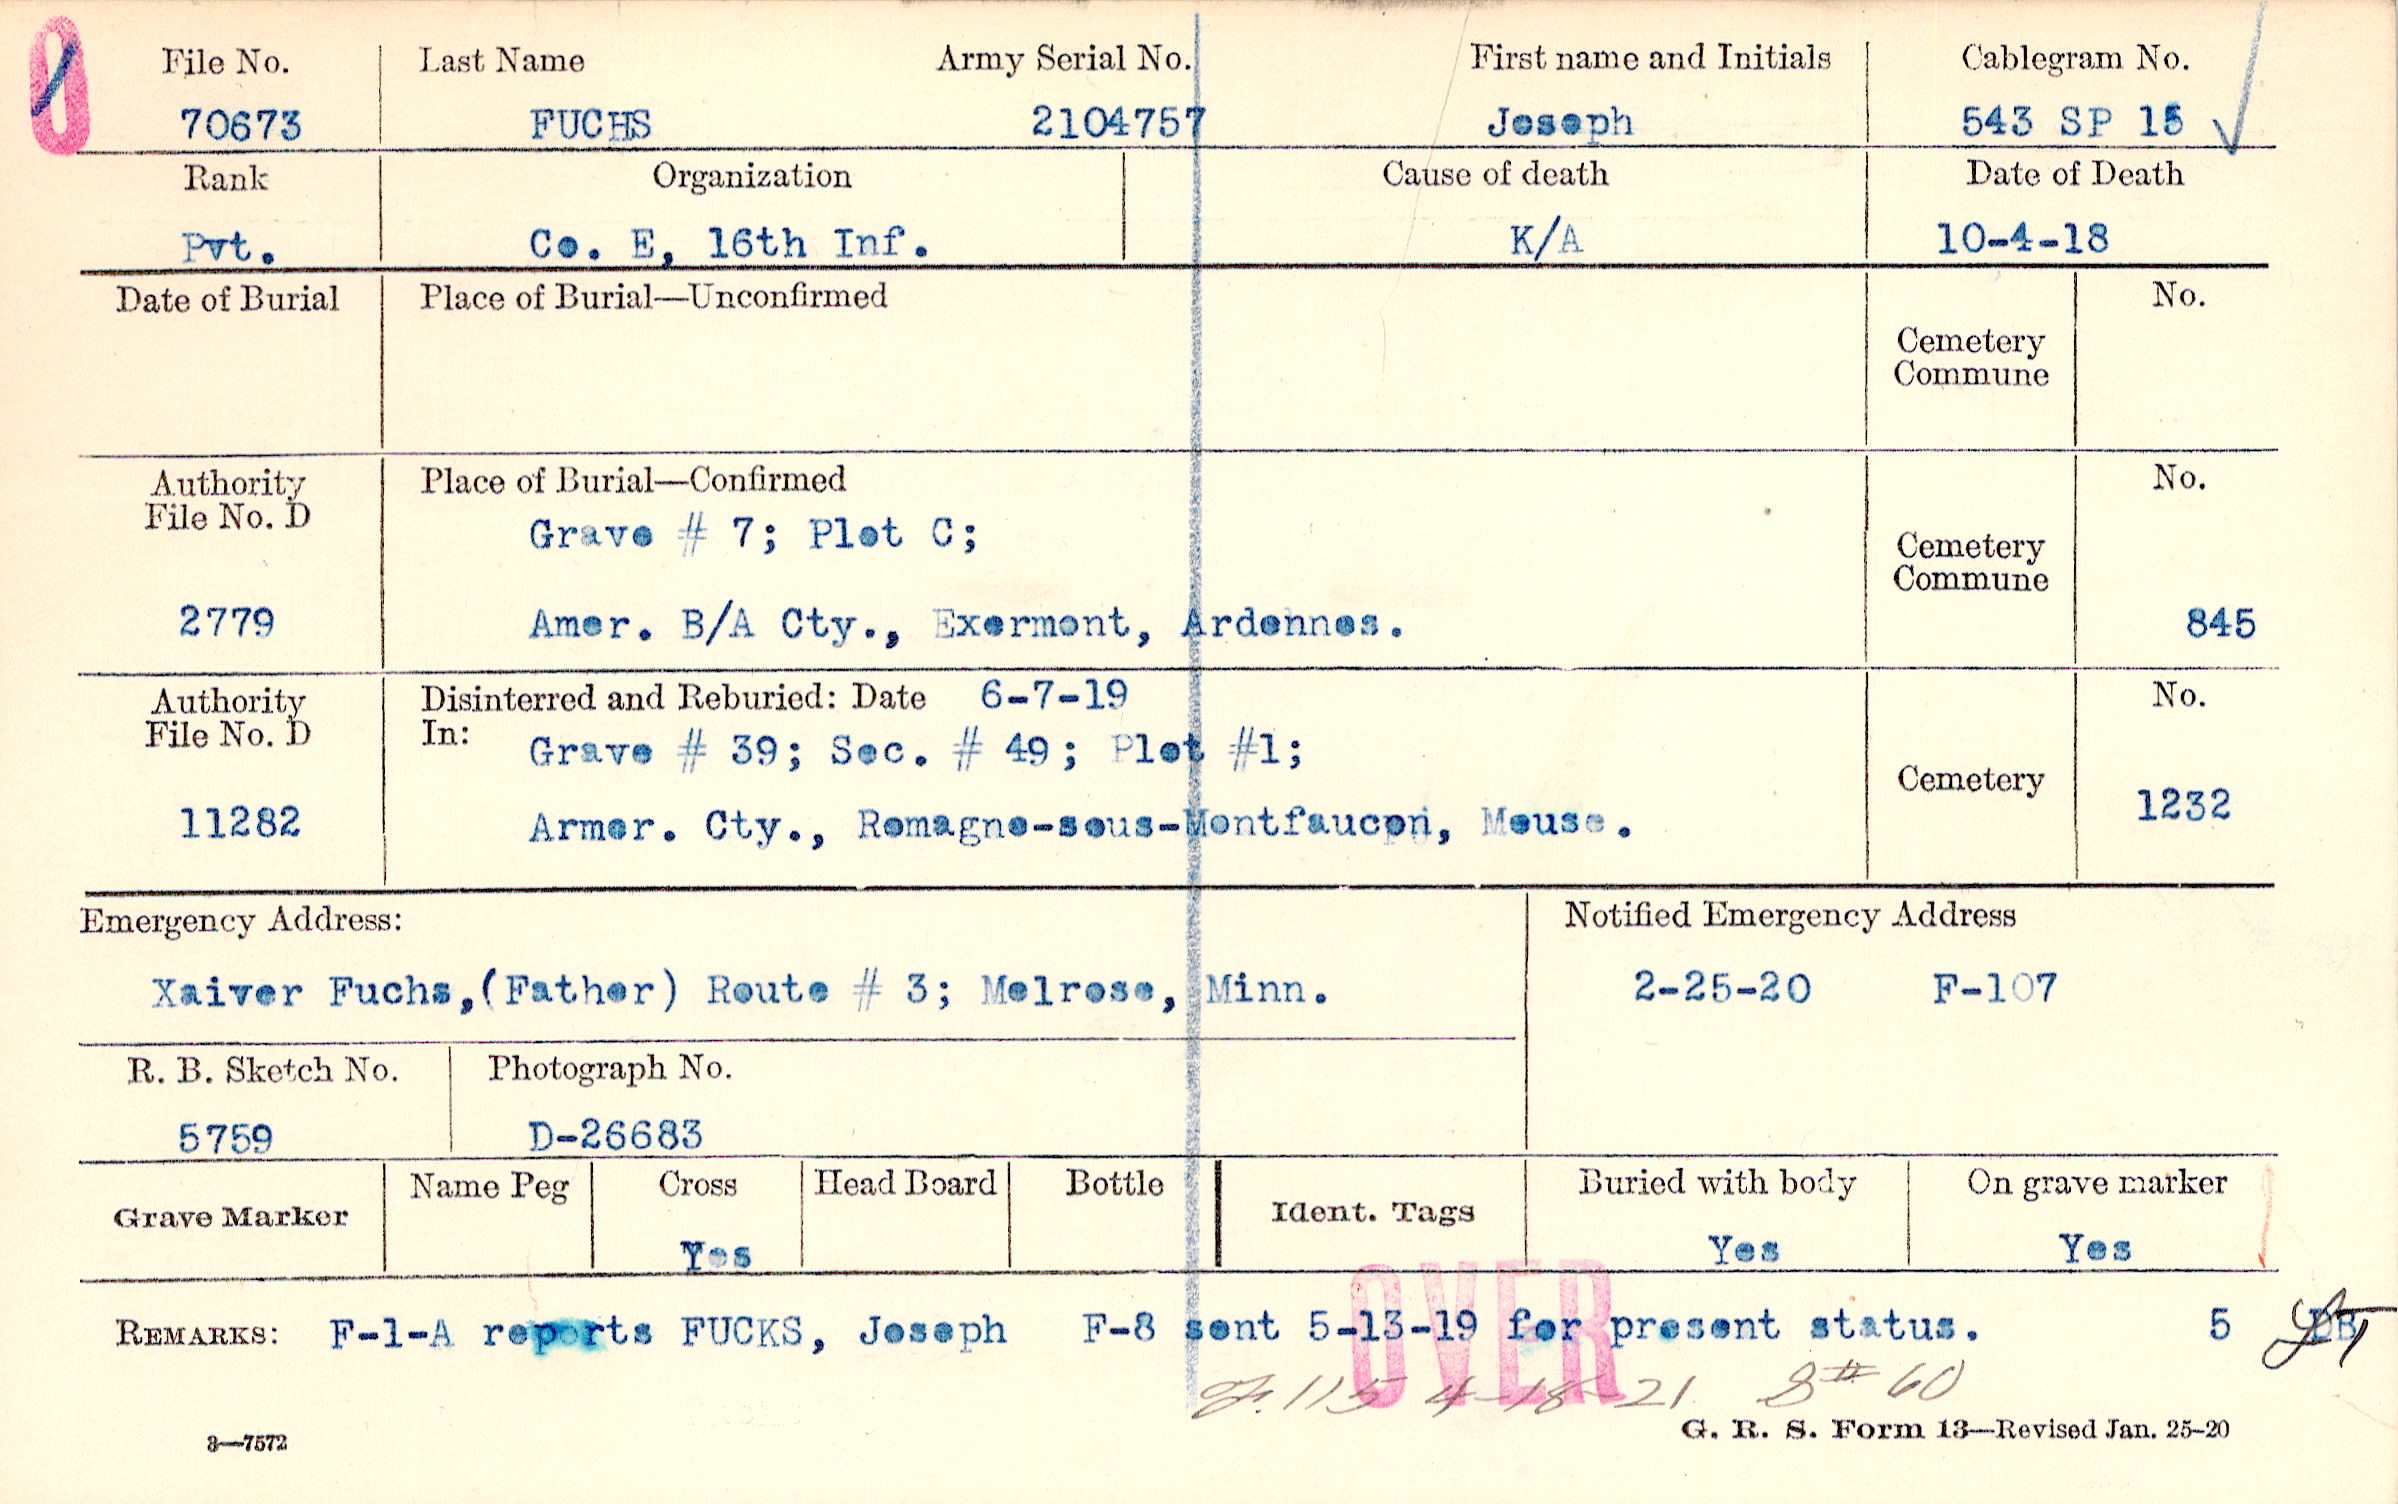 File No. Last Name Army Serial No. First name and Initials Cablegram No.
70673 FUCHS 2104757 Joseph 543 SP 15
Rank Organization Cause of death Date of Death
Pvt. Co. E, 16th Inf. K/A 10-4-18
Date of Burial Place of Burial—Unconfirmed No.
Cemetery
Commune
Authority Place of Burial—Confirmed No.
File No. D
Grave # 7; Plot C;
Cemetery
Commune
2779 Amer. B/A Cty., Exermont, Ardennes. 845
Authority Disinterred and Reburied: Date 6-7-19 No.
File No. D In: Grave # 39; Sec. # 49; Plot #1;
Cemetery
11282 Armer. Cty., Romagne-sous-Montfaucon, Meuse. 1232
Emergency Address: Notified Emergency Address
Xaiver Fuchs,(Father) Route # 3; Melrose, Minn. 2-25-20 F-107
R. B. Sketch No. Photograph No.
5759 D-26683
Grave Marker Name Peg Cross Head Board Bottle Ident. Tags Buried with body On grave marker
Yes Yes Yes
OVER
REMARKS: F-1-A reports FUCKS, Joseph F-8 sent 5-13-19 for present status. 5
F. 115 4-18-21 S# 60
3—7572 G. R. S. Form 13—Revised Jan. 25-20